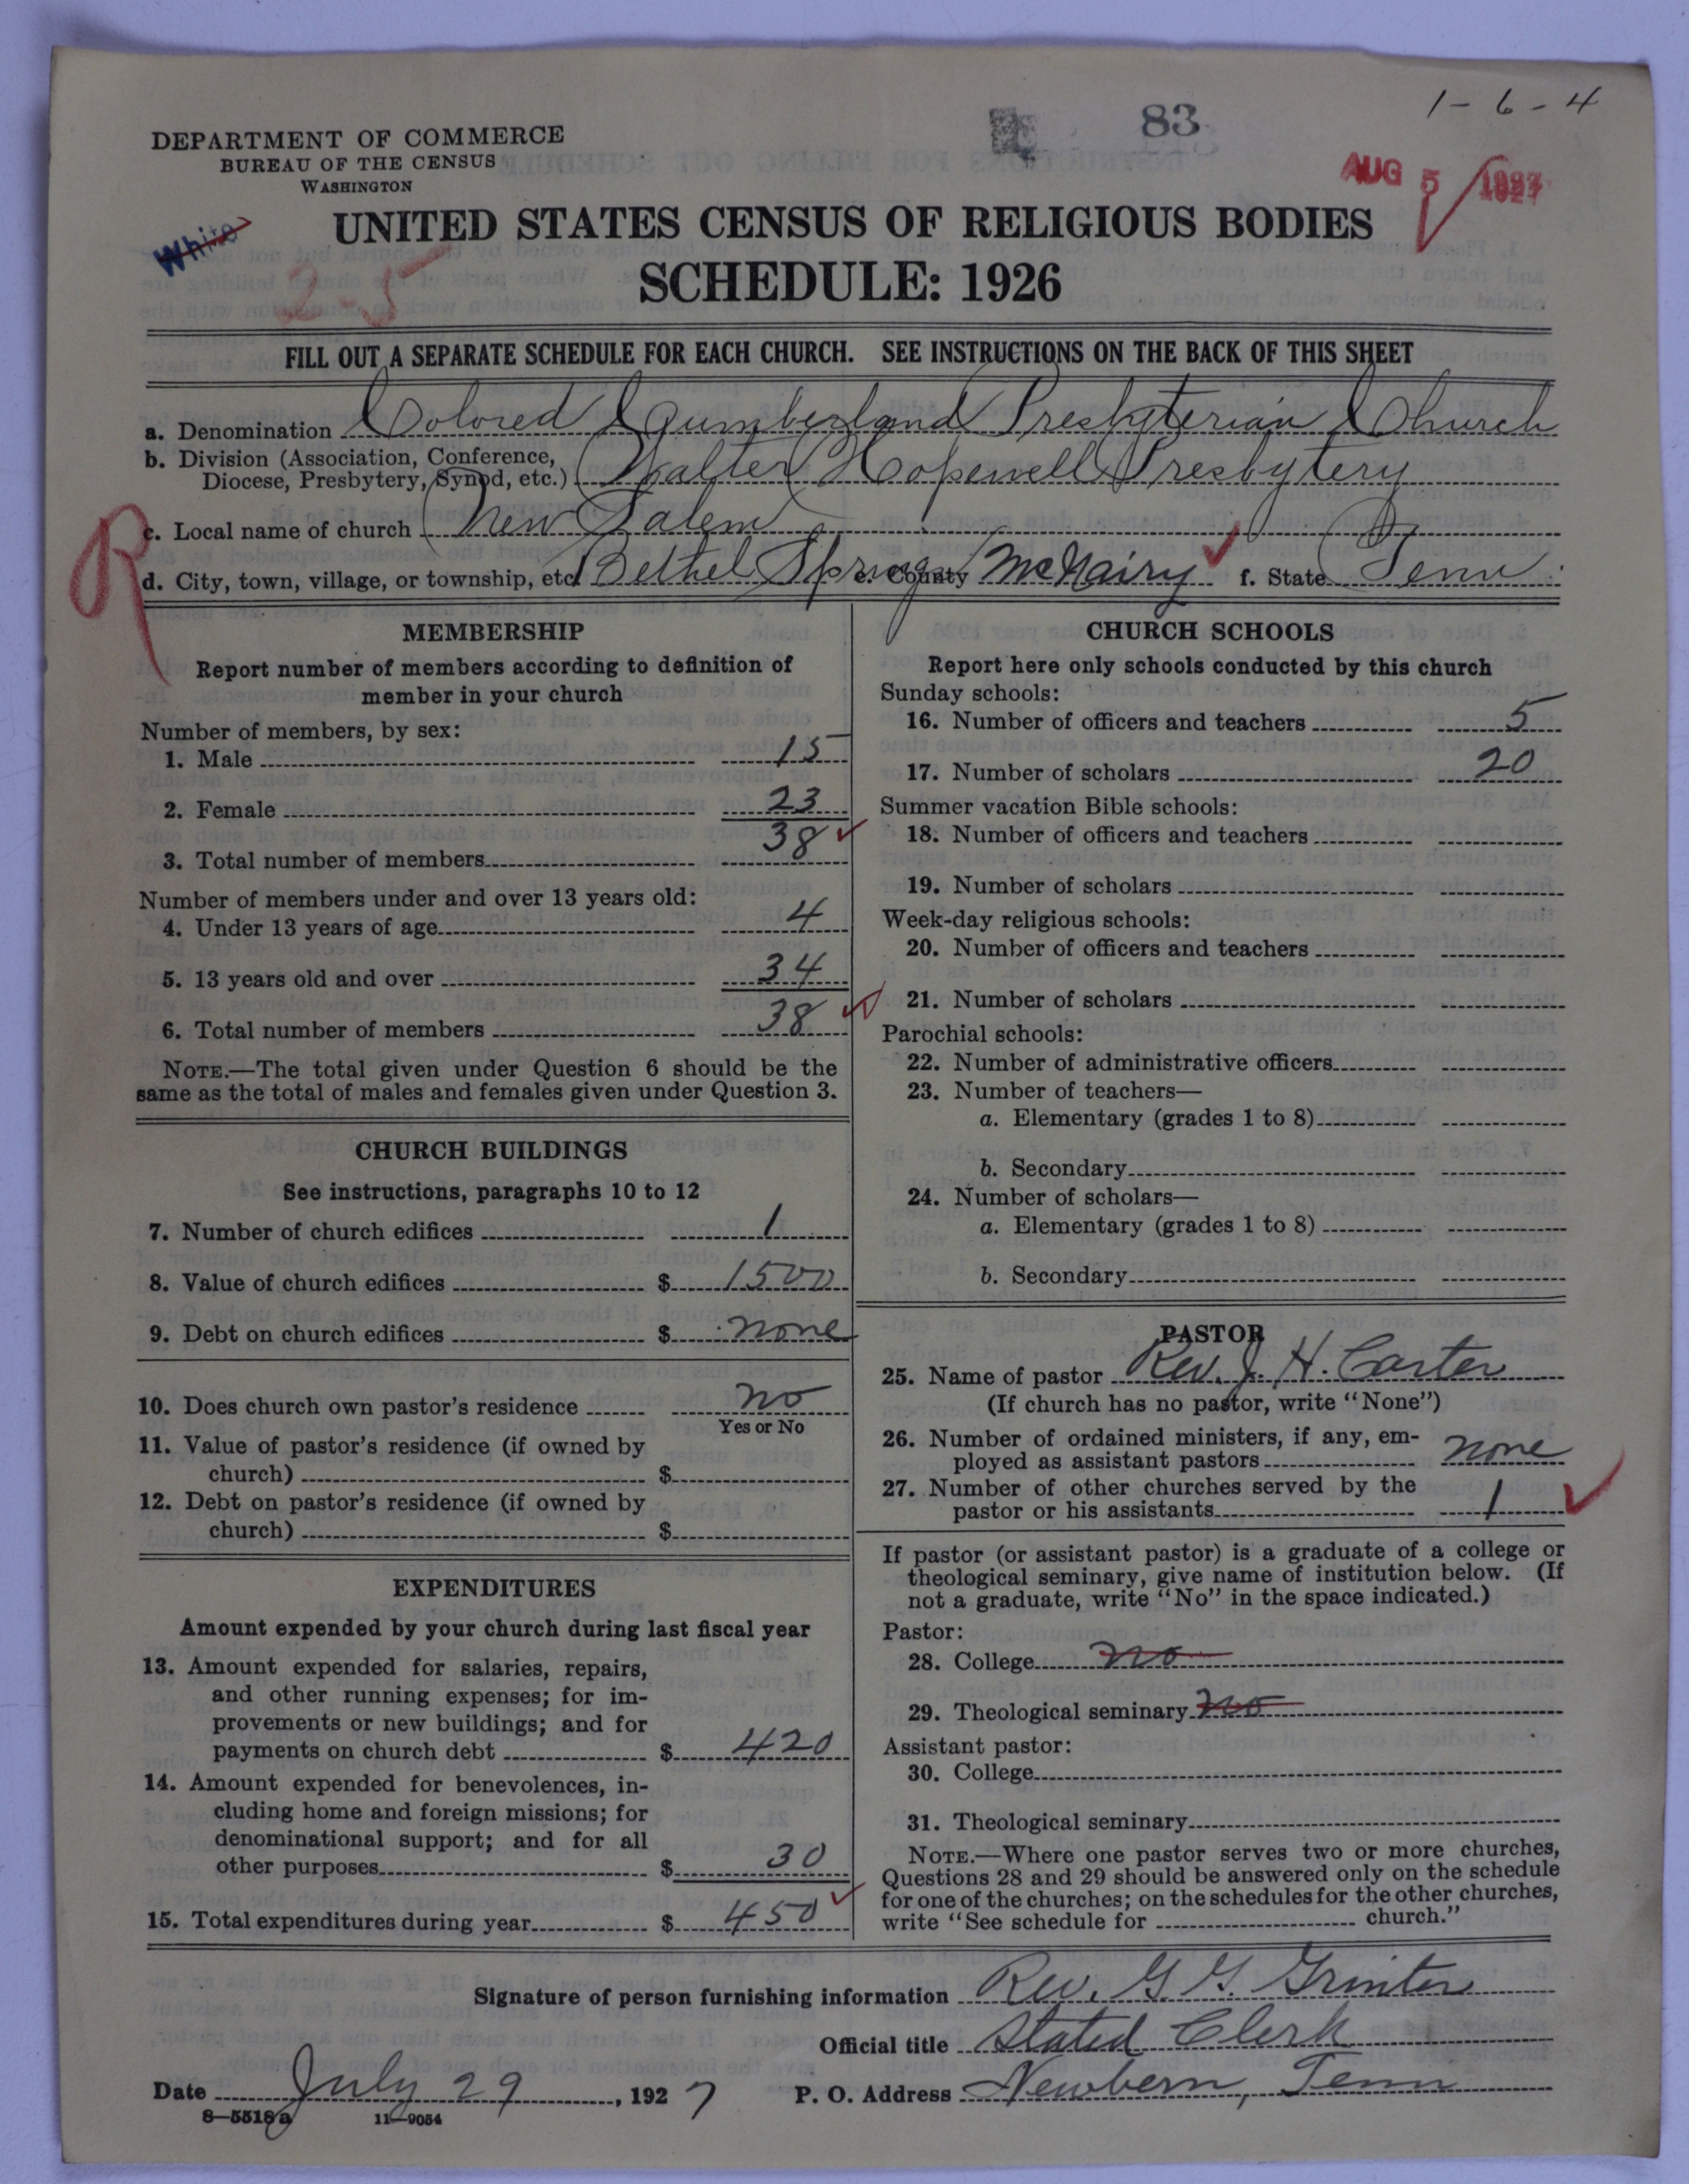 1-6-4
83
DEPARTMENT OF COMMERCE
BUREAU OF THE CENSUS
WASHINGTON
AUG 5 1927
White
UNITED STATES CENSUS OF RELIGIOUS BODIES
2-5
SCHEDULE: 1926
FILL OUT A SEPARATE SCHEDULE FOR EACH CHURCH. SEE INSTRUCTIONS ON THE BACK OF THIS SHEET
a. Denomination Colored Cumberland Presbyterian Church
b. Division (Association, Conference,
Diocese, Presbytery, Synod, etc.) Walter Hopewell Presbytery
R
c. Local name of church New Salem
d. City, town, village, or township, etc. Bethel Spring e. County McNairy f. State Tenn.
MEMBERSHIP
Report number of members according to definition of
member in your church
Number of members, by sex:
1. Male 15
2. Female 23
3. Total number of members 38
Number of members under and over 13 years old:
4. Under 13 years of age 4
5. 13 years old and over 34
6. Total number of members 38
NOTE.—The total given under Question 6 should be the
same as the total of males and females given under Question 3.
CHURCH BUILDINGS
See instructions, paragraphs 10 to 12
7. Number of church edifices 1
8. Value of church edifices $ 1500
9. Debt on church edifices $ none
10. Does church own pastor's residence no
Yes or No
11. Value of pastor's residence (if owned by
church) $
12. Debt on pastor's residence (if owned by
church) $
EXPENDITURES
Amount expended by your church during last fiscal year
13. Amount expended for salaries, repairs,
and other running expenses; for im-
provements or new buildings; and for
payments on church debt $ 420
14. Amount expended for benevolences, in-
cluding home and foreign missions; for
denominational support; and for all
other purposes $ 30
15. Total expenditures during year $ 450
CHURCH SCHOOLS
Report here only schools conducted by this church
Sunday schools:
16. Number of officers and teachers 5
17. Number of scholars 20
Summer vacation Bible schools:
18. Number of officers and teachers
19. Number of scholars
Week-day religious schools:
20. Number of officers and teachers
21. Number of scholars
Parochial schools:
22. Number of administrative officers
23. Number of teachers—
a. Elementary (grades 1 to 8)
b. Secondary
24. Number of scholars—
a. Elementary (grades 1 to 8)
b. Secondary
PASTOR
25. Name of pastor Rev. J. H. Carter
(If church has no pastor, write "None")
26. Number of ordained ministers, if any, em-
ployed as assistant pastors none
27. Number of other churches served by the
pastor or his assistants 1
If pastor (or assistant pastor) is a graduate of a college or
theological seminary, give name of institution below. (If
not a graduate, write "No" in the space indicated.)
Pastor:
28. College no
29. Theological seminary no
Assistant pastor:
30. College
31. Theological seminary
NOTE.—Where one pastor serves two or more churches,
Questions 28 and 29 should be answered only on the schedule
for one of the churches; on the schedules for the other churches,
write "See schedule for church."
Signature of person furnishing information Rev. G. G. Grinter
Official title Stated Clerk
Date July 29, 1927 P. O. Address Newbern, Tenn
8-5518a 11-9054